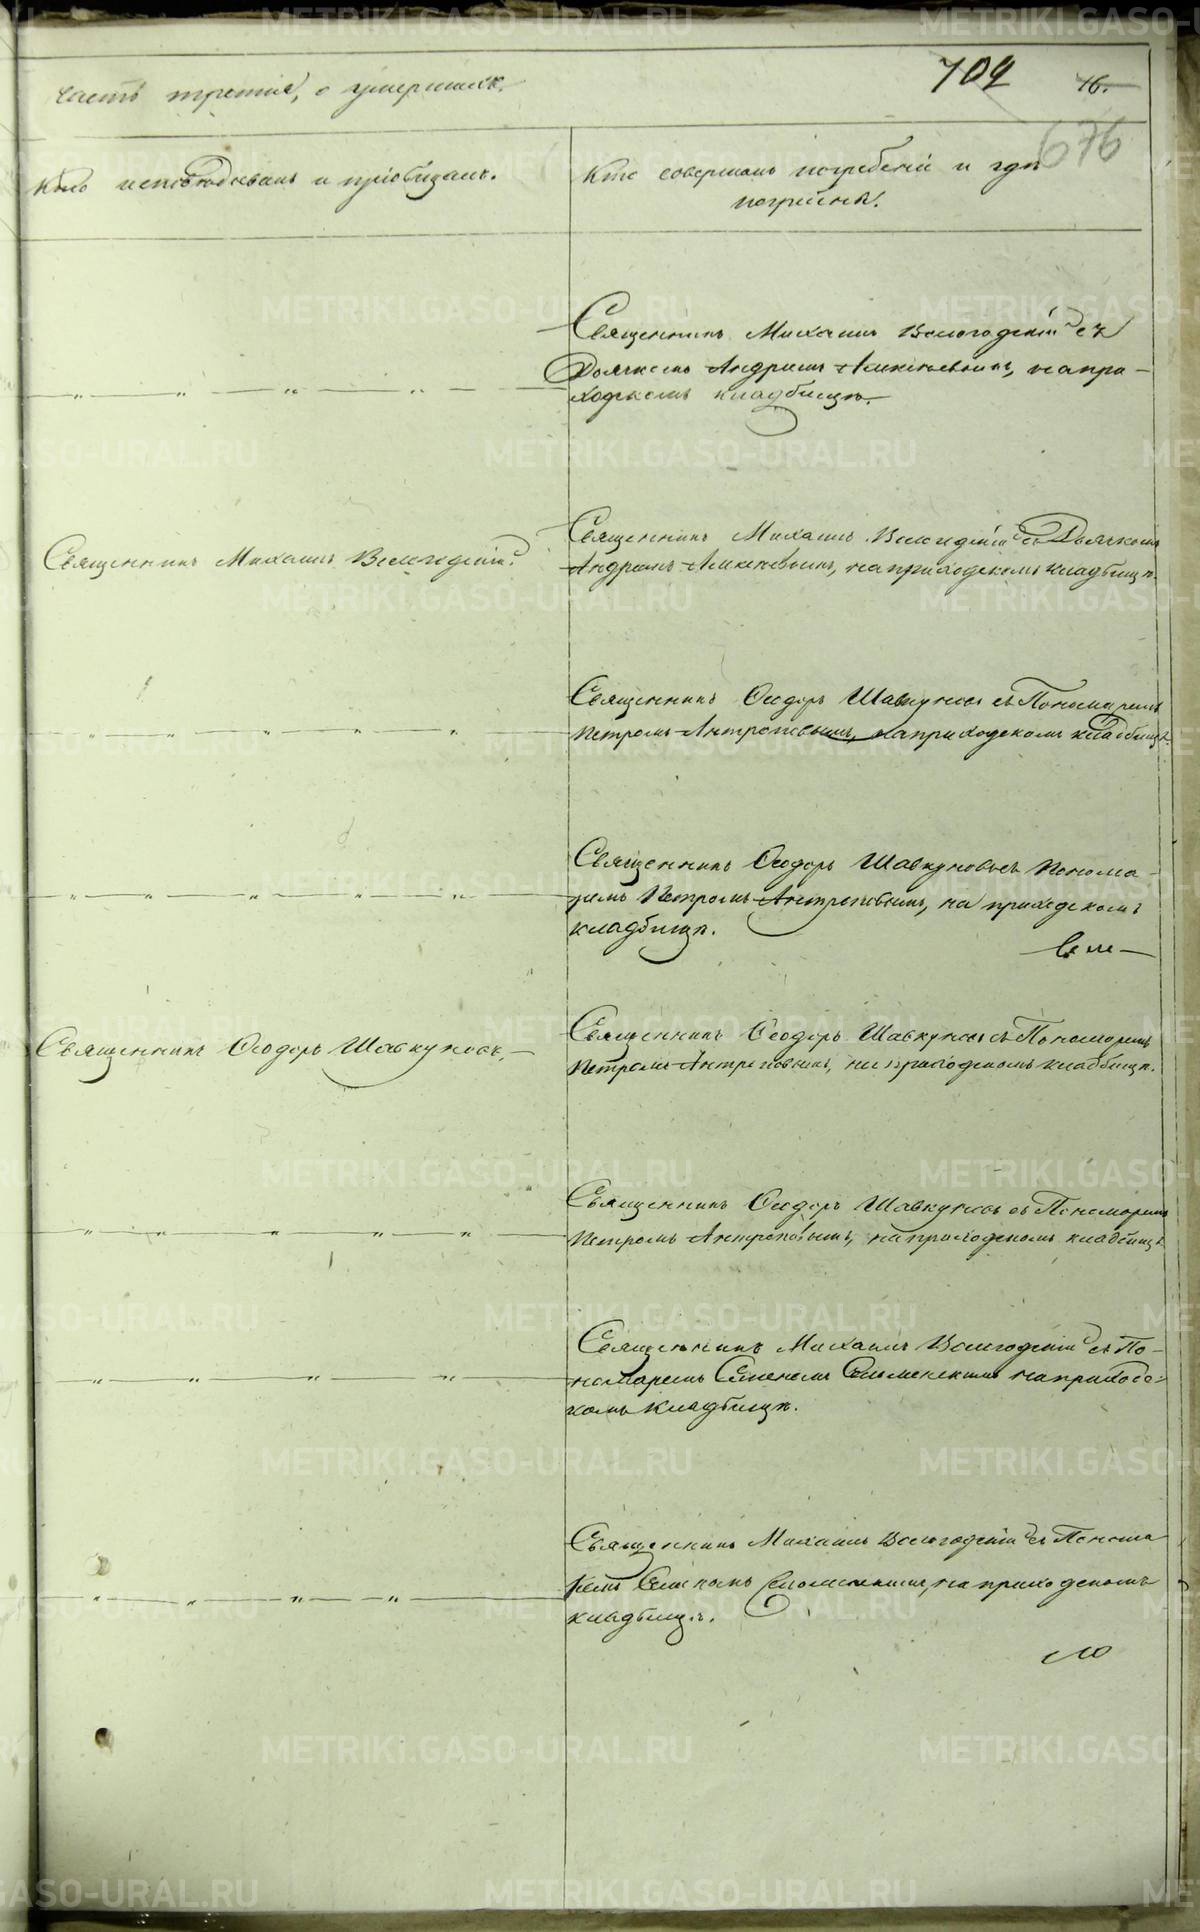 часть третия, о умершихъ.
702
76.
676
Кто исповѣдывалъ и приобщалъ.
Кто совершалъ погребеніе и гдѣ
погребены.
Священникъ Михаилъ Вологодскій съ
Дьячкомъ Андреемъ Алексѣевымъ, на при-
ходскомъ кладбищѣ.
Священникъ Михаилъ Вологодскій.
Священникъ Михаилъ Вологодскій съ Дьячкомъ
Андреемъ Алексѣевымъ, на приходскомъ кладбищѣ.
Священникъ Ѳеодоръ Шавкуновъ съ Пономаремъ
Петромъ Антроповымъ, на приходскомъ кладбищѣ.
Священникъ Ѳеодоръ Шавкуновъ съ Понома-
ремъ Петромъ Антроповымъ, на приходскомъ
кладбищѣ.
Священникъ Ѳеодоръ Шавкуновъ.
Священникъ Ѳеодоръ Шавкуновъ съ Пономаремъ
Петромъ Антроповымъ, на приходскомъ кладбищѣ.
Священникъ Ѳеодоръ Шавкуновъ съ Пономаремъ
Петромъ Антроповымъ, на приходскомъ кладбищѣ
Священникъ Михаилъ Вологодскій съ По-
номаремъ Семеномъ на приходс-
комъ кладбищѣ.
Священникъ Михаилъ Вологодскій съ Понома
ремъ на приходскомъ
кладбищѣ.
METRIKI.GASO-URAL.RU